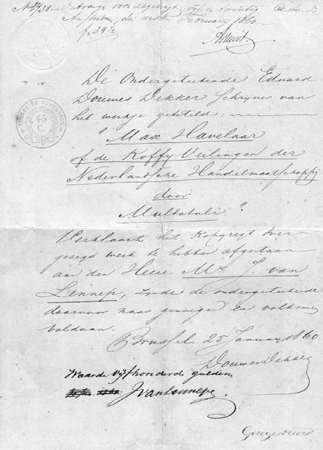 Februarij 1860.
De Ondergeteekende Eduard
Douwes Dekker Schrijver van
het werkje getiteld:
"Max Havelaar
of de Koffy Veilingen der
Nederlandsche Handelmaatschappij
door
Multatuli"
Verklaart het Kopyregt over
gezegd werk te hebben afgestaan
aan den Heere Mr J. van
Lennep, zynde de ondergeteekende
daarvoor naar genoegen en volkomen
voldaan.
Brussel 25 Januarij 1860
Douwes Dekker
Waarde vyfhonderd gulden
JvanLennep